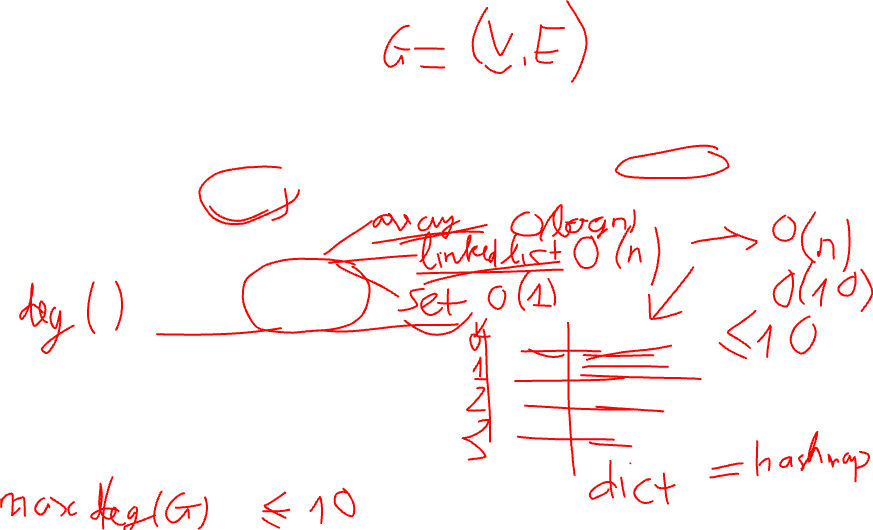 G = (V, E)
array O(logn)
linkedlist O(n) → O(n)
O(10)
set O(1)
deg ()
≤10
0
1
2
3
dict = hashmap
max deg(G) ≤ 10